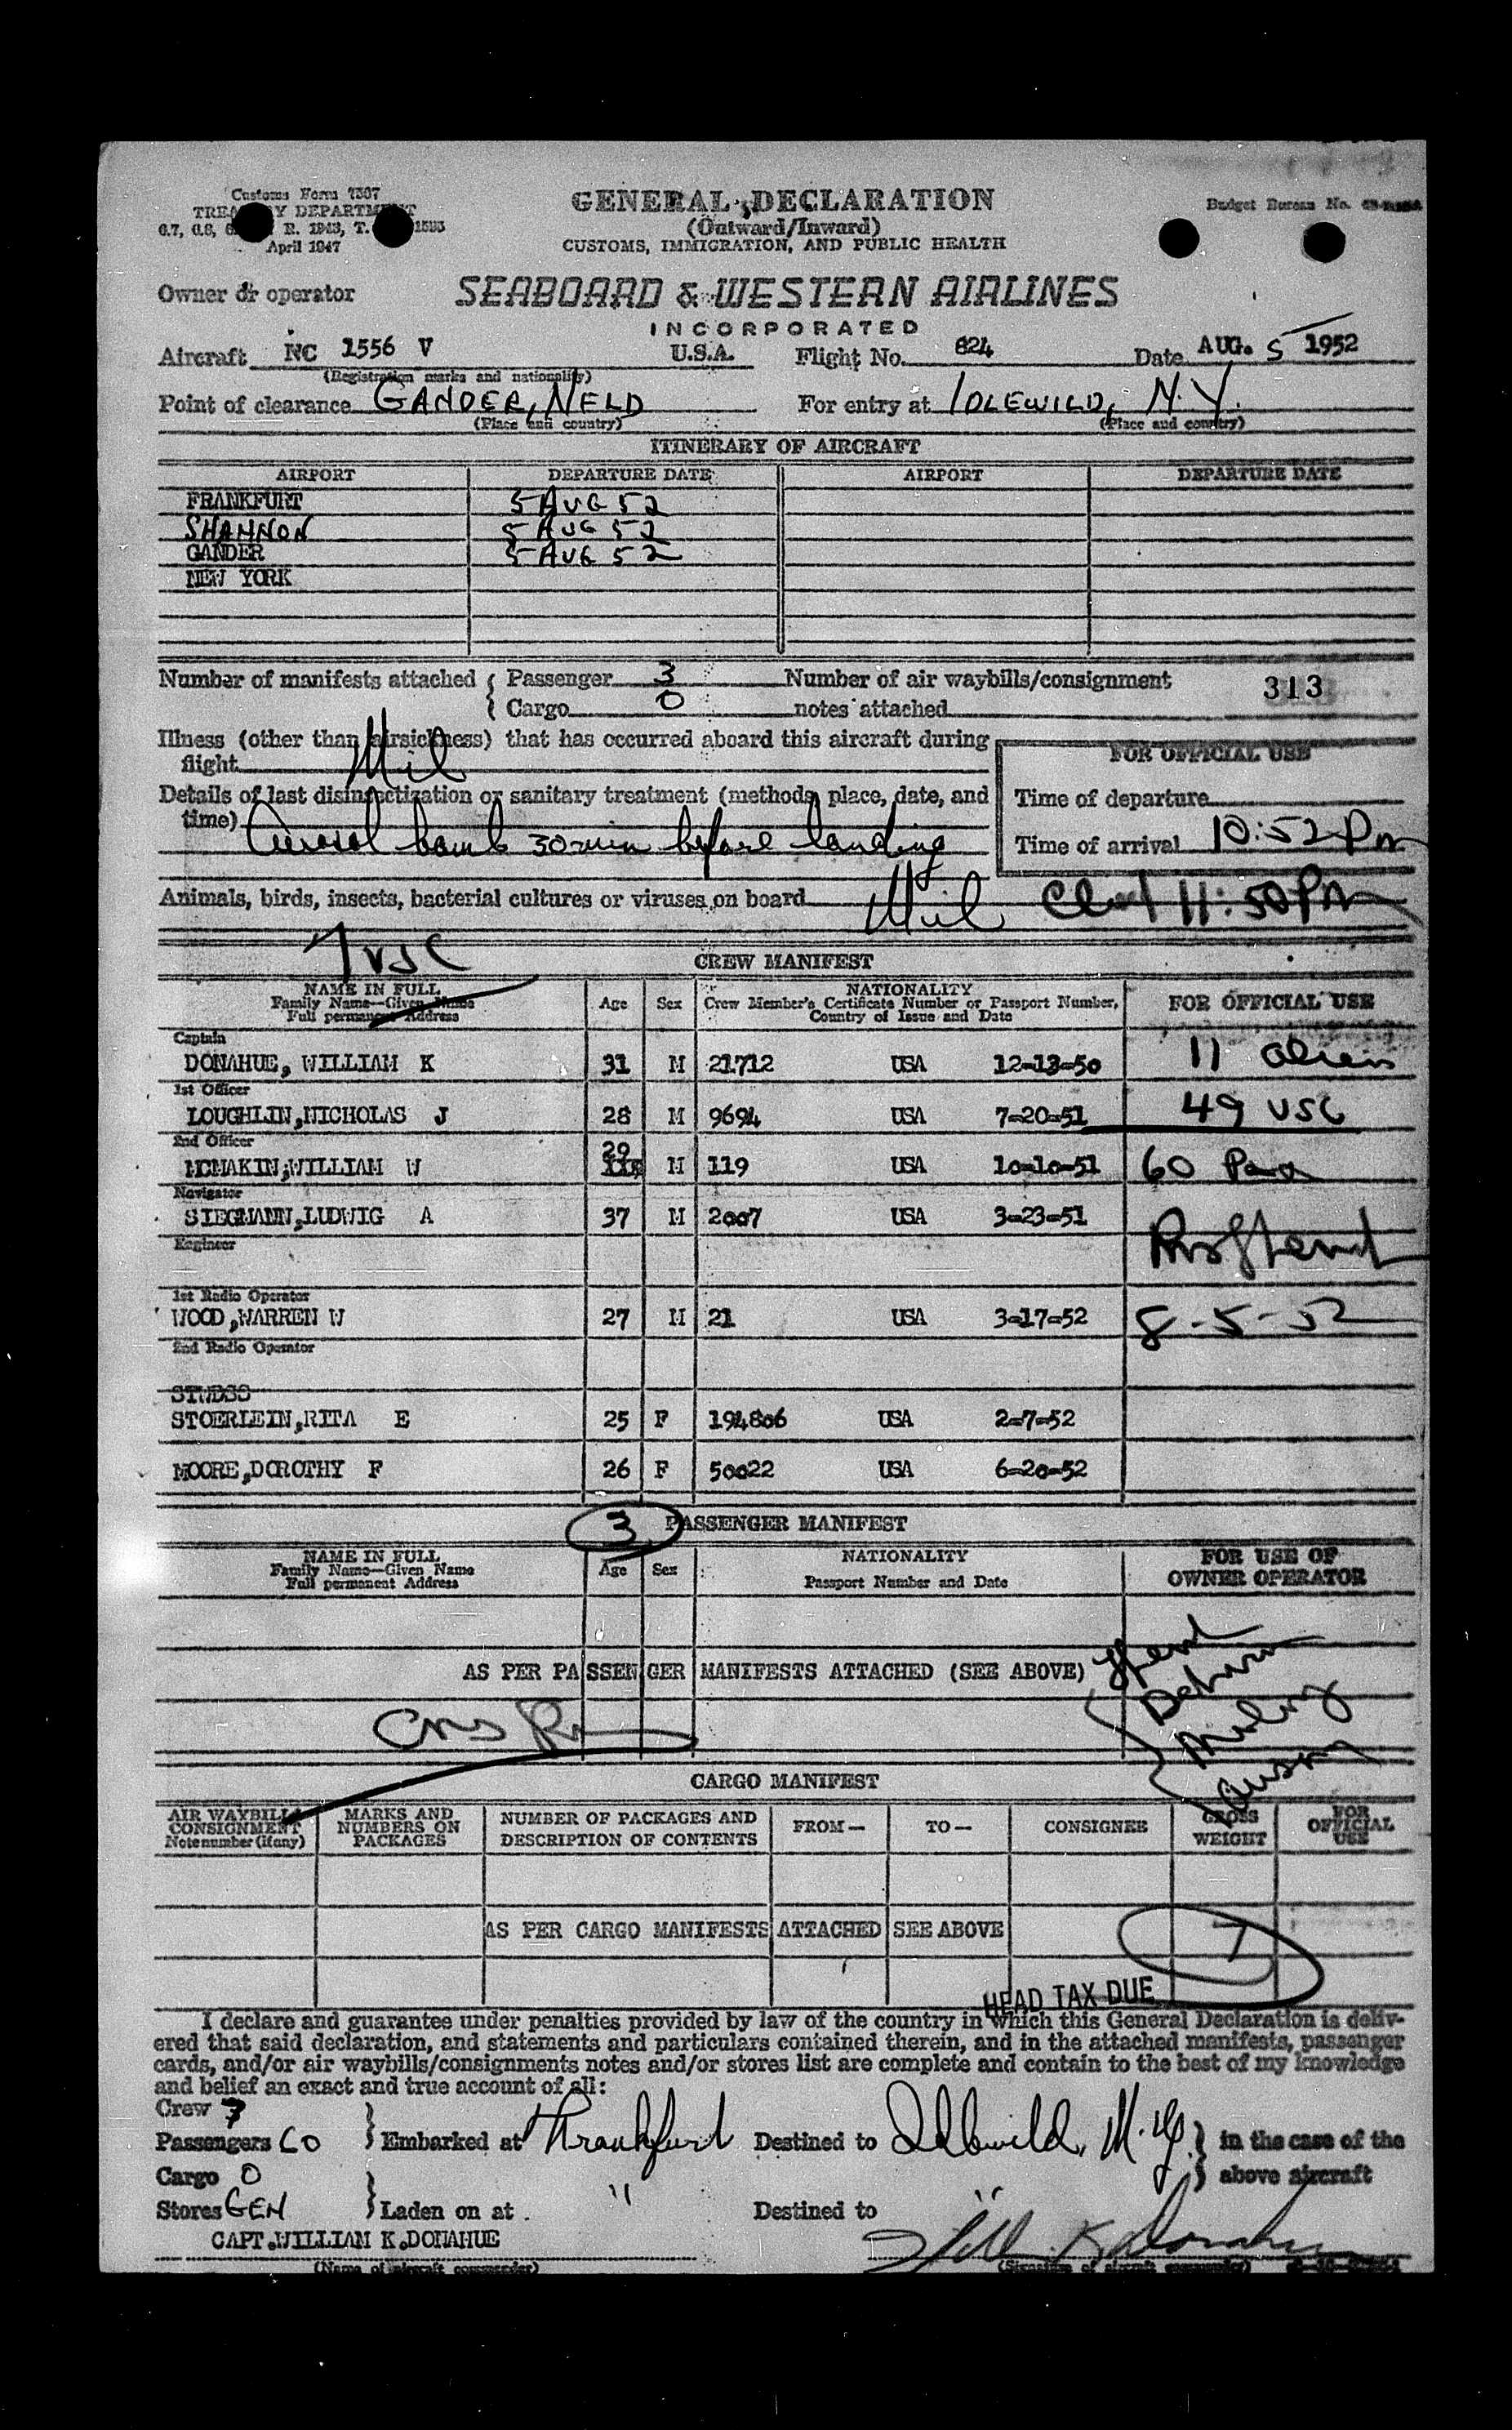 Customs Form 7507
TREASURY DEPARTMENT
April 1947
GENERAL DECLARATION
(Outward/Inward)
CUSTOMS, IMMIGRATION, AND PUBLIC HEALTH
Budget Bureau No.
Owner or operator SEABOARD & WESTERN AIRLINES
INCORPORATED
Aircraft NC 1556 V U.S.A. Flight No. 824 Date AUG. 5 1952
(Registration marks and nationality)
Point of clearance GANDER, NFLD For entry at IDLEWILD, N.Y.
(Place and country) (Place and country)
ITINERARY OF AIRCRAFT
AIRPORT DEPARTURE DATE AIRPORT DEPARTURE DATE
FRANKFURT 5 AUG 52
SHANNON 5 AUG 52
GANDER 5 AUG 52
NEW YORK
Number of manifests attached { Passenger 3 Number of air waybills/consignment 313
Cargo 0 notes attached
Illness (other than airsickness) that has occurred aboard this aircraft during
flight Nil
FOR OFFICIAL USE
Details of last disinsectization or sanitary treatment (methods, place, date, and
time) Aerosol bomb 30 min before landing
Time of departure
Time of arrival 10:52 PM
Animals, birds, insects, bacterial cultures or viruses on board Nil 11:50 PM
7 USC
CREW MANIFEST
NAME IN FULL
Family Name—Given Name
Full permanent Address
Age Sex
NATIONALITY
Crew Member's Certificate Number or Passport Number,
Country of Issue and Date
FOR OFFICIAL USE
Captain
DONAHUE, WILLIAM K 31 M 21712 USA 12-13-50 11 alien
1st Officer
LOUGHLIN,NICHOLAS J 28 M 9694 USA 7-20-51 49 USC
2nd Officer
MCMAKIN,WILLIAM W 29 M 119 USA 10-10-51 60 Pax
Navigator
SIEGMANN,LUDWIG A 37 M 2007 USA 3-23-51
Engineer
1st Radio Operator
WOOD,WARREN W 27 M 21 USA 3-17-52 8-5-52
2nd Radio Operator
STWDSS
STOERLEIN,RITA E 25 F 194806 USA 2-7-52
MOORE,DOROTHY F 26 F 50022 USA 6-20-52
3 PASSENGER MANIFEST
NAME IN FULL
Family Name—Given Name
Full permanent Address
Age Sex
NATIONALITY
Passport Number and Date
FOR USE OF
OWNER OPERATOR
AS PER PASSENGER MANIFESTS ATTACHED (SEE ABOVE)
CARGO MANIFEST
AIR WAYBILL
CONSIGNMENT
Note number (if any)
MARKS AND
NUMBERS ON
PACKAGES
NUMBER OF PACKAGES AND
DESCRIPTION OF CONTENTS
FROM— TO— CONSIGNEE
GROSS
WEIGHT
FOR
OFFICIAL
USE
AS PER CARGO MANIFESTS ATTACHED SEE ABOVE
HEAD TAX DUE
I declare and guarantee under penalties provided by law of the country in which this General Declaration is deliv-
ered that said declaration, and statements and particulars contained therein, and in the attached manifests, passenger
cards, and/or air waybills/consignments notes and/or stores list are complete and contain to the best of my knowledge
and belief an exact and true account of all:
Crew 7
Passengers 60 } Embarked at Frankfurt Destined to Idlewild, N.Y. } in the case of the
Cargo 0 } above aircraft
Stores GEN } Laden on at " Destined to "
CAPT.WILLIAM K.DONAHUE Will. K Donahue
(Name of aircraft commander) (Signature of aircraft commander)